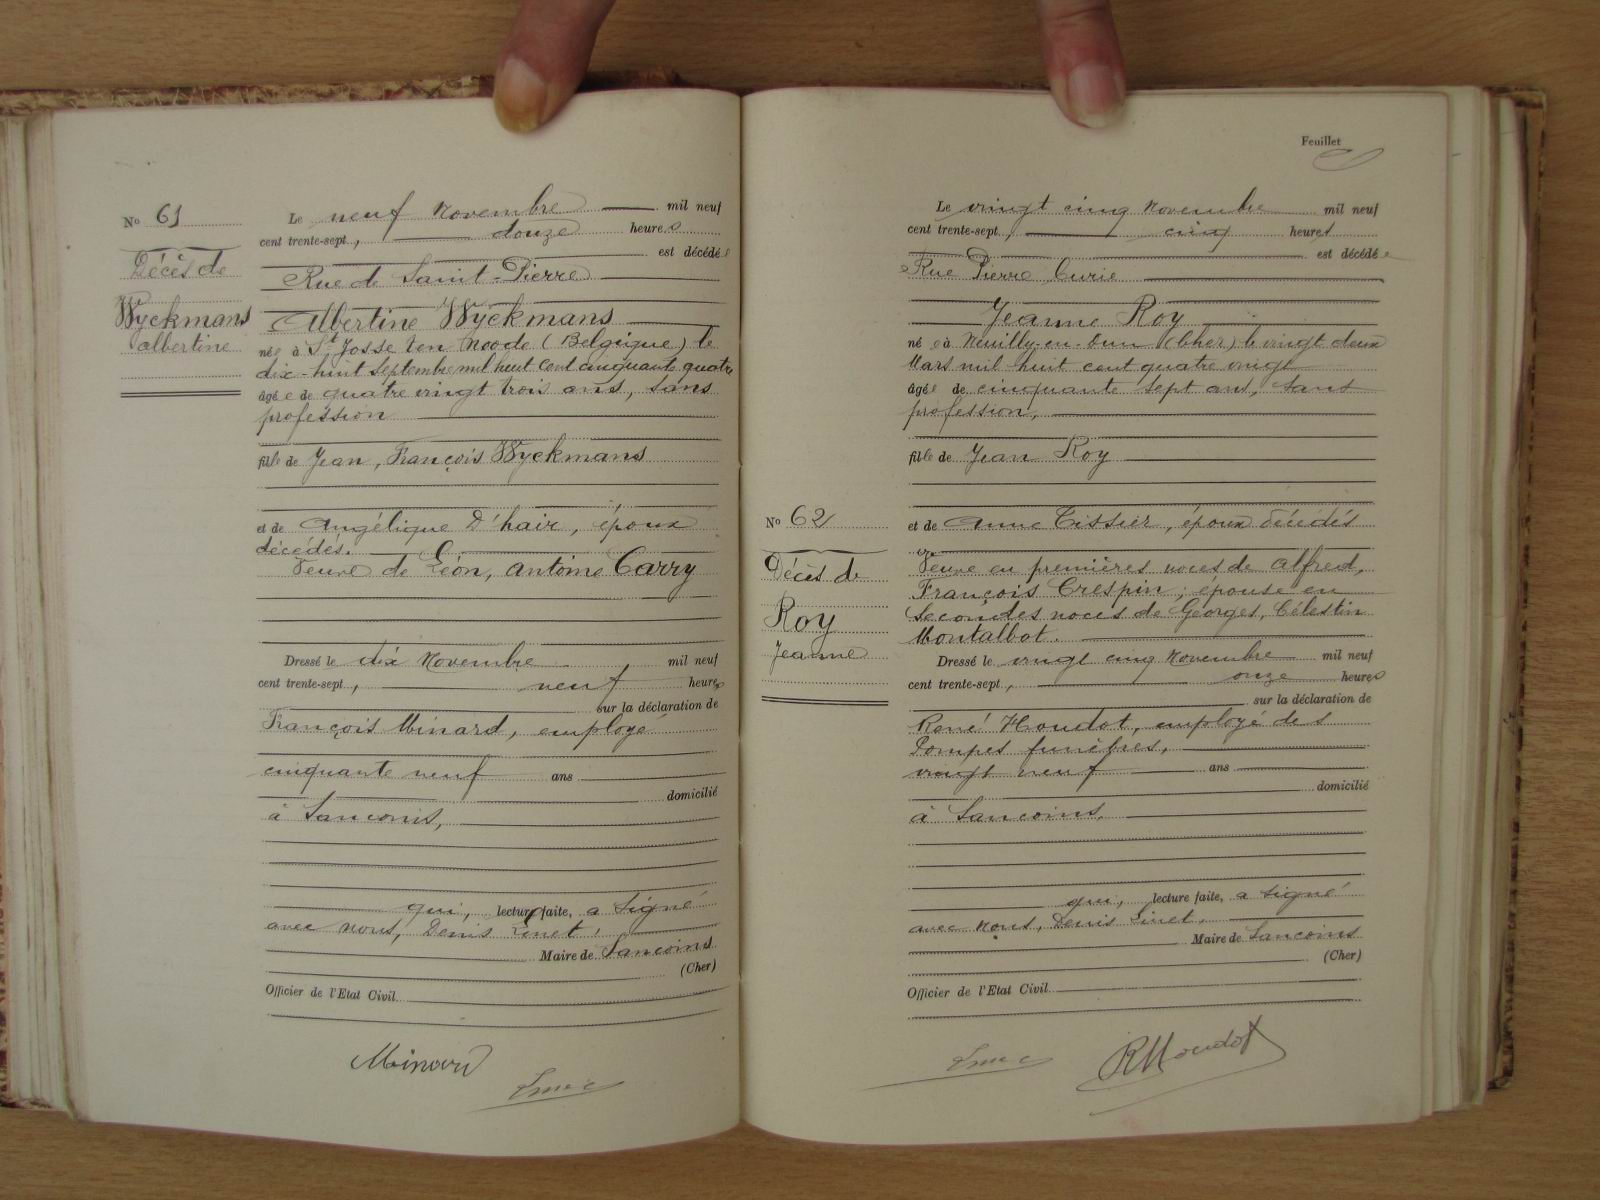 No 61
Décès de
Wyckmans
albertine
Le neuf Novembre mil neuf
cent trente-sept, douze heures
est décédée
Rue de Saint-Pierre
Albertine Wyckmans
née à St Josse ten Noode (Belgique) le
dix-huit Septembre mil huit cent cinquante quatre
âgée de quatre vingt trois ans, sans
profession
fille de Jean, François Wyckmans
et de Angélique D'hair, époux
décédés.
Veuve de Léon, antoine Carry
Dressé le dix Novembre mil neuf
cent trente-sept, neuf heures
sur la déclaration de
François Minard, employé
cinquante neuf ans
domicilié
à Sancoins,
qui, lecture faite, a signé
avec nous, Denis Linet,
Maire de Sancoins
(Cher)
Officier de l'Etat Civil
Minard
Feuillet
Le vingt cinq Novembre mil neuf
cent trente-sept, cinq heures
est décédée
Rue Pierre Curie
Jeanne Roy
née à Neuilly-en-Dun (Cher) le vingt deux
Mars mil huit cent quatre vingt
âgée de cinquante sept ans, sans
profession,
fille de Jean Roy
No 62
Décès de
Roy
Jeanne
et de Anne Tissier, époux décédés
Veuve en premières noces de Alfred,
François Crespin ; épouse en
secondes noces de Georges, Célestin
Montalbot.
Dressé le vingt cinq Novembre mil neuf
cent trente-sept, onze heures
sur la déclaration de
René Houdot, employé des
Pompes funèbres,
vingt neuf ans
domicilié
à Sancoins,
qui, lecture faite, a signé
avec nous, Denis Linet,
Maire de Sancoins
(Cher)
Officier de l'Etat Civil
RHoudot